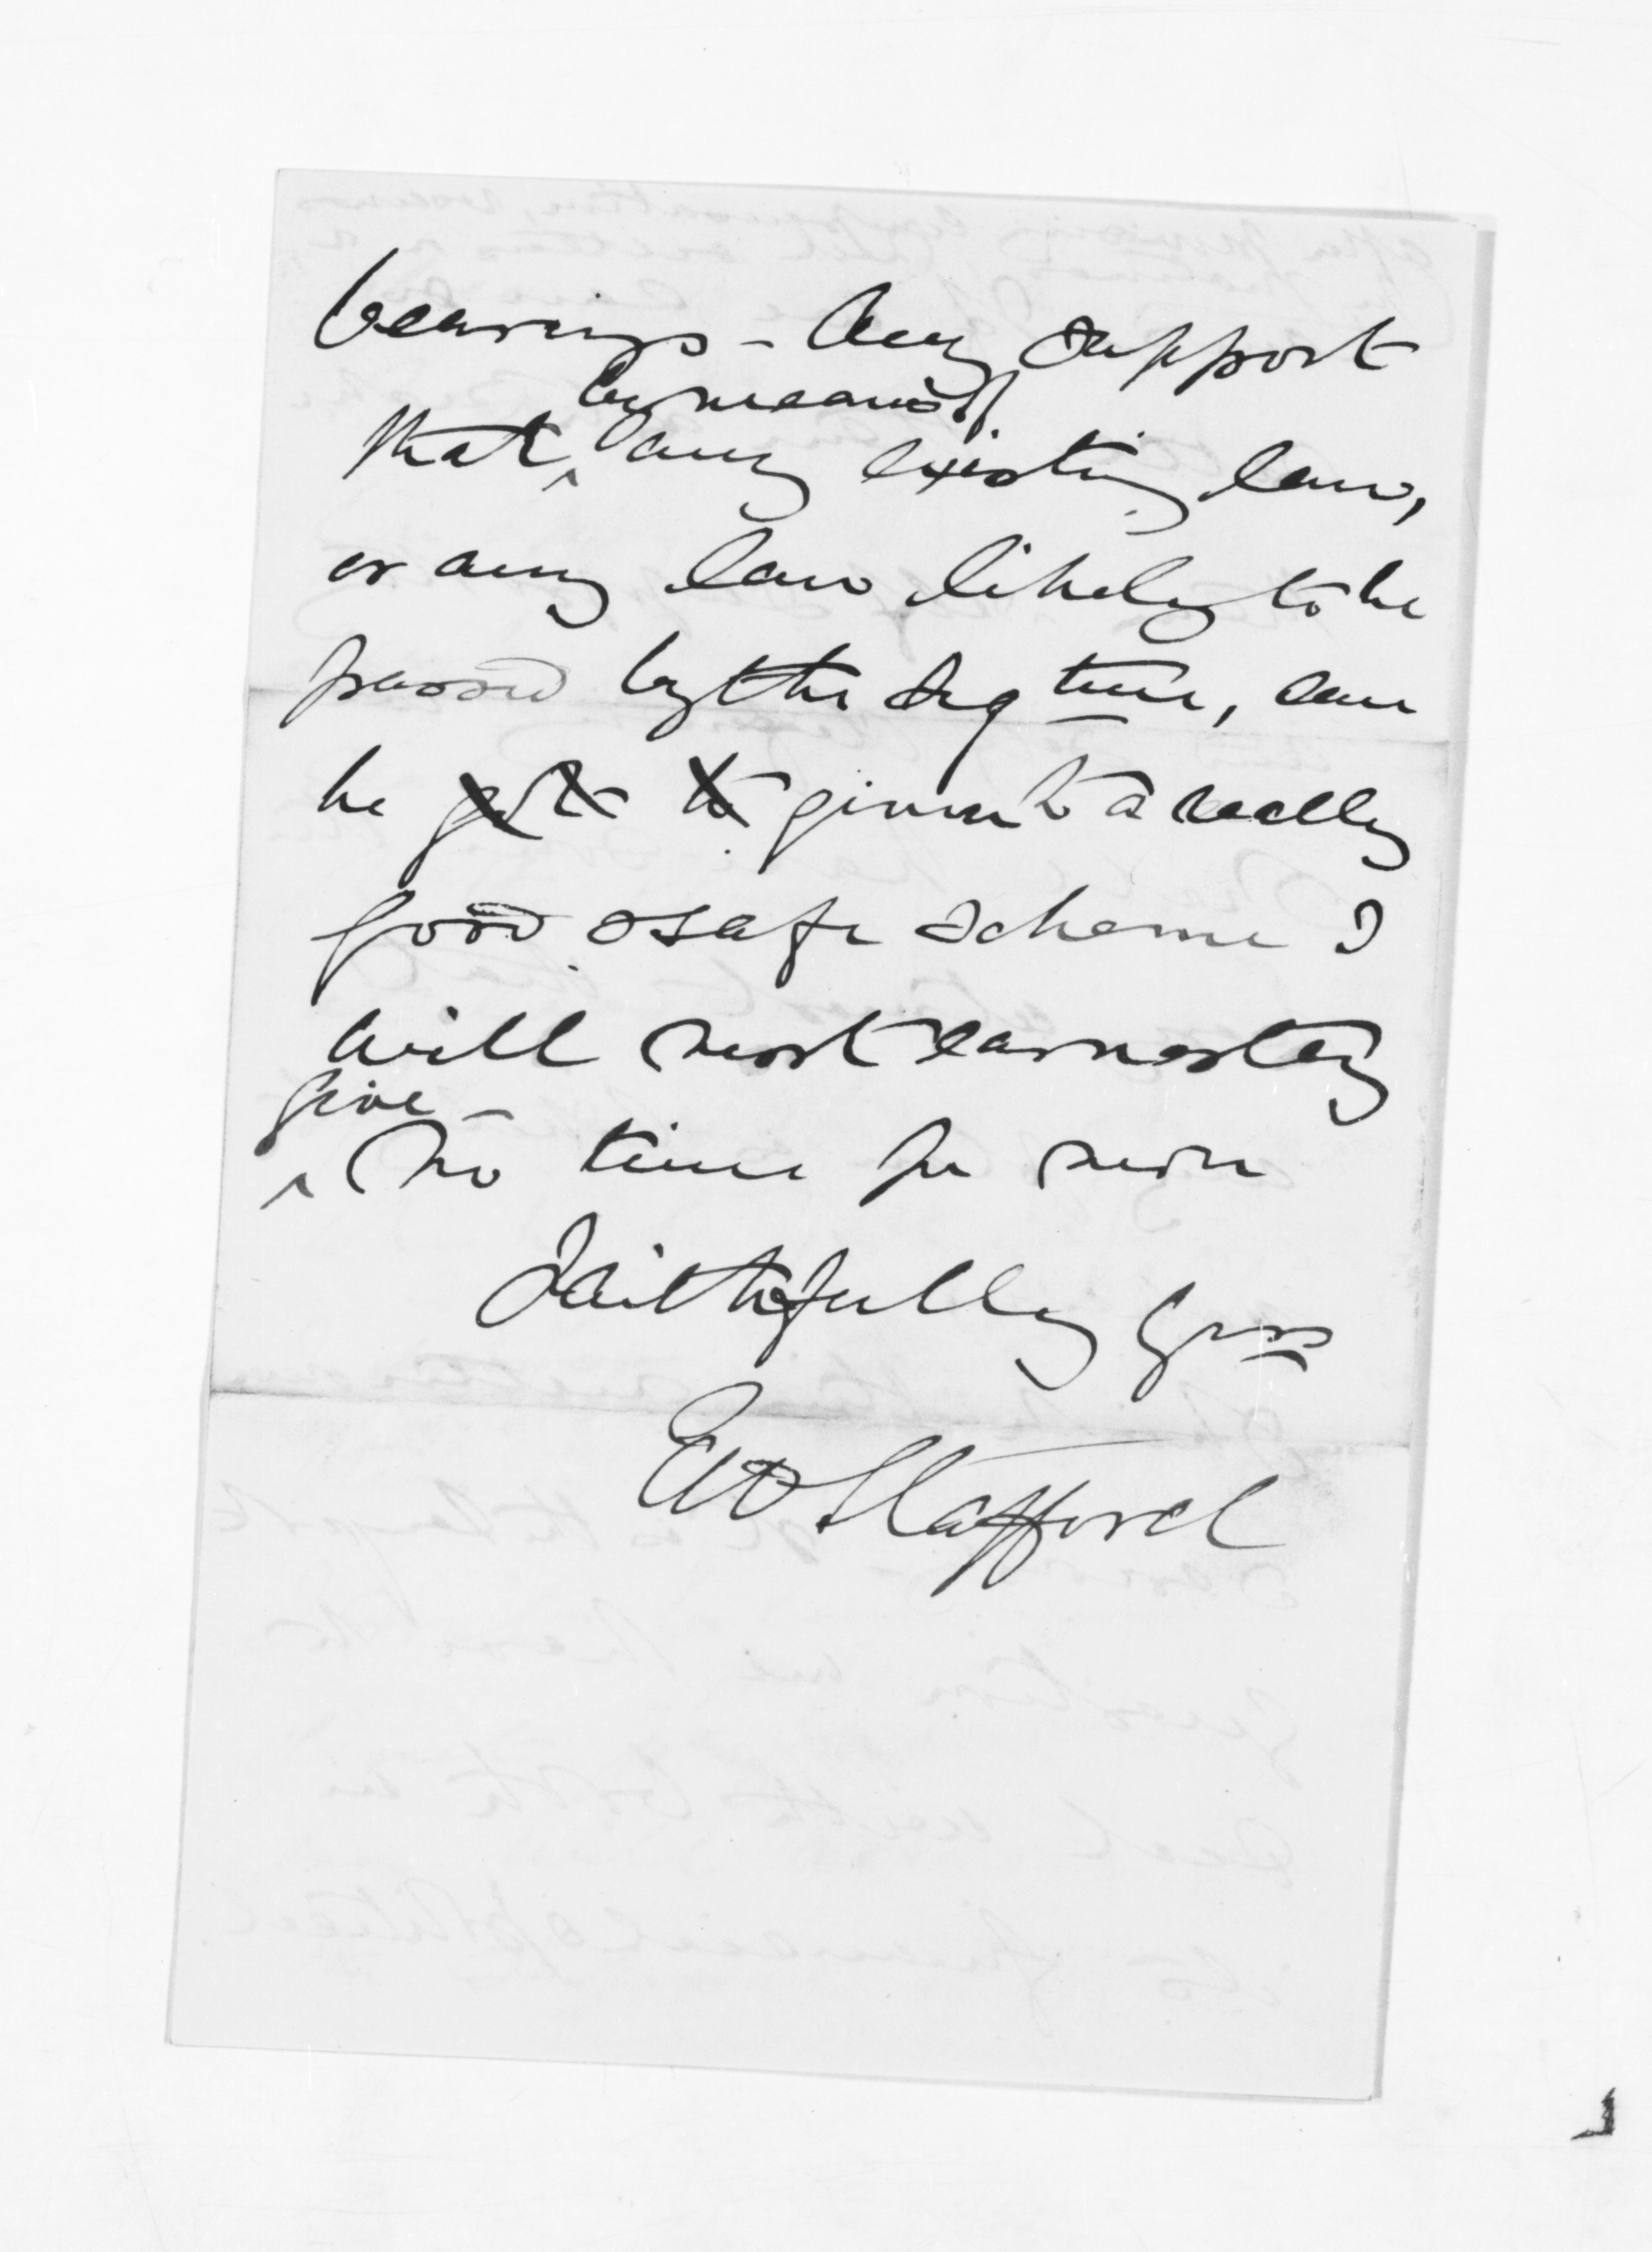 bearings - Any support
by means of
that any existing law,
or any law likely to be
passed by the Legture, can
be given to a really
good & safe scheme I
will most earnestly
give -
No time for more
Faithfully yrs
EW Stafford